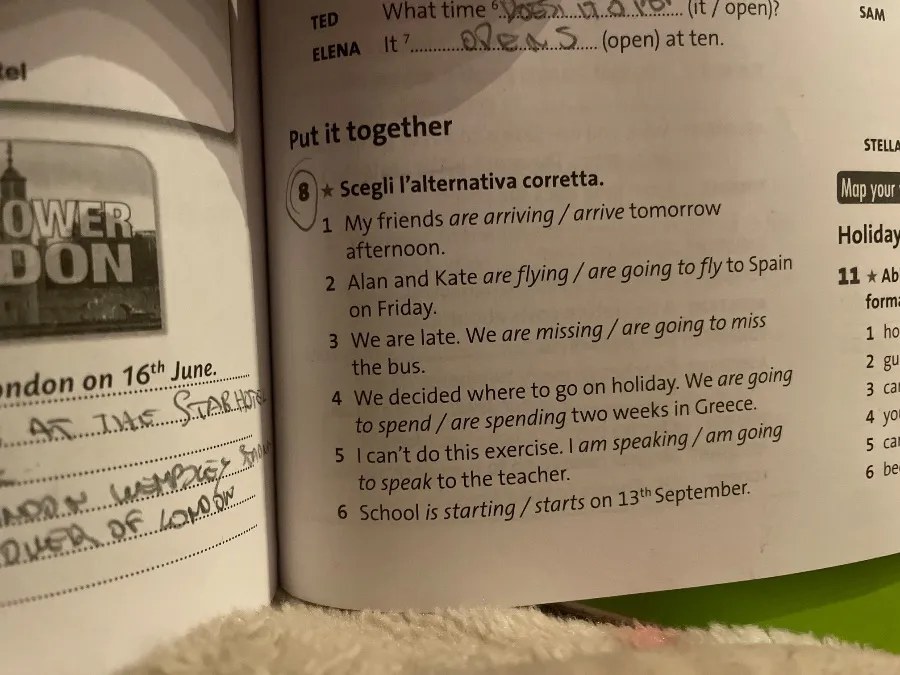 tel
OWER
DON
ondon on 16th June.
AT THE STARHOTEL
LONDON WEMBLEY
OWER OF LONDON
TED What time 6 DOES IT OPEN (it / open)?
ELENA It 7 OPENS (open) at ten.
Put it together
8 ★ Scegli l'alternativa corretta.
1 My friends are arriving / arrive tomorrow
afternoon.
2 Alan and Kate are flying / are going to fly to Spain
on Friday.
3 We are late. We are missing / are going to miss
the bus.
4 We decided where to go on holiday. We are going
to spend / are spending two weeks in Greece.
5 I can't do this exercise. I am speaking / am going
to speak to the teacher.
6 School is starting / starts on 13th September.
SAM
STELLA
Map your
Holiday
11 ★ Ab
forma
1 ho
2 gu
3 car
4 you
5 car
6 bee